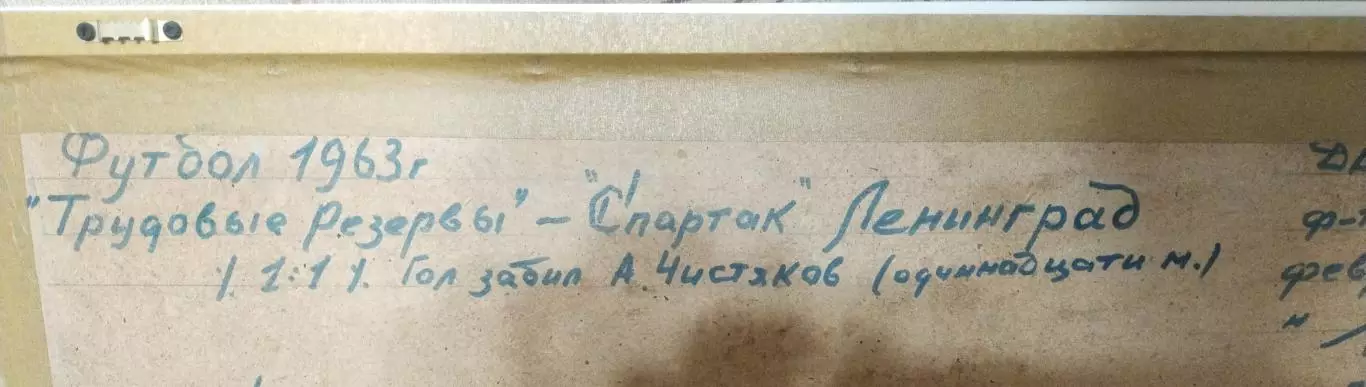 Футбол 1963г
"Трудовые Резервы" – "Спартак" Ленинград
/ 1:1 /. Гол забил А. Чистяков (одиннадцати м.)